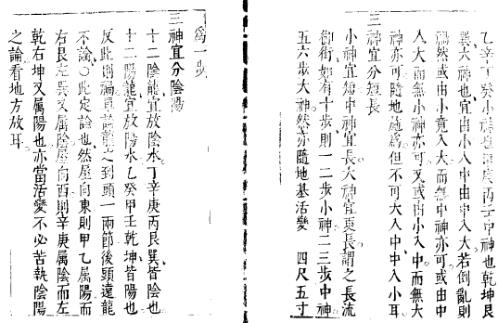 乙辛丁癸小神甲庚丙壬中神也乾坤艮
巽大神也宜由小入中由中入大若倒亂則
凶然或由小竟入大而無中神亦可或由中
入大而無小神亦可又或由小入中而無大
神亦可隨地施為但不可大入中中入小耳
三神宜分短長
小神宜短中神宜長大神宜更長謂之長流
御街如有十步則一二步小神二三步中神
五六步大神然亦隨地基活變 四尺五寸
為一步
三神宜分陰陽
十二陰龍宜放陰水丁辛庚丙艮巽皆陰也
十二陽龍宜放陽水乙癸甲壬乾坤皆陽也
反此則漏只論龍之到頭一兩節後頭遠龍
不論〇此定論也然屋向東則甲乙屬陽而
右艮左巽又屬陰屋向西則辛庚屬陰而左
乾右坤又屬陽也亦當活變不必苦執陰陽
之論看地方放耳